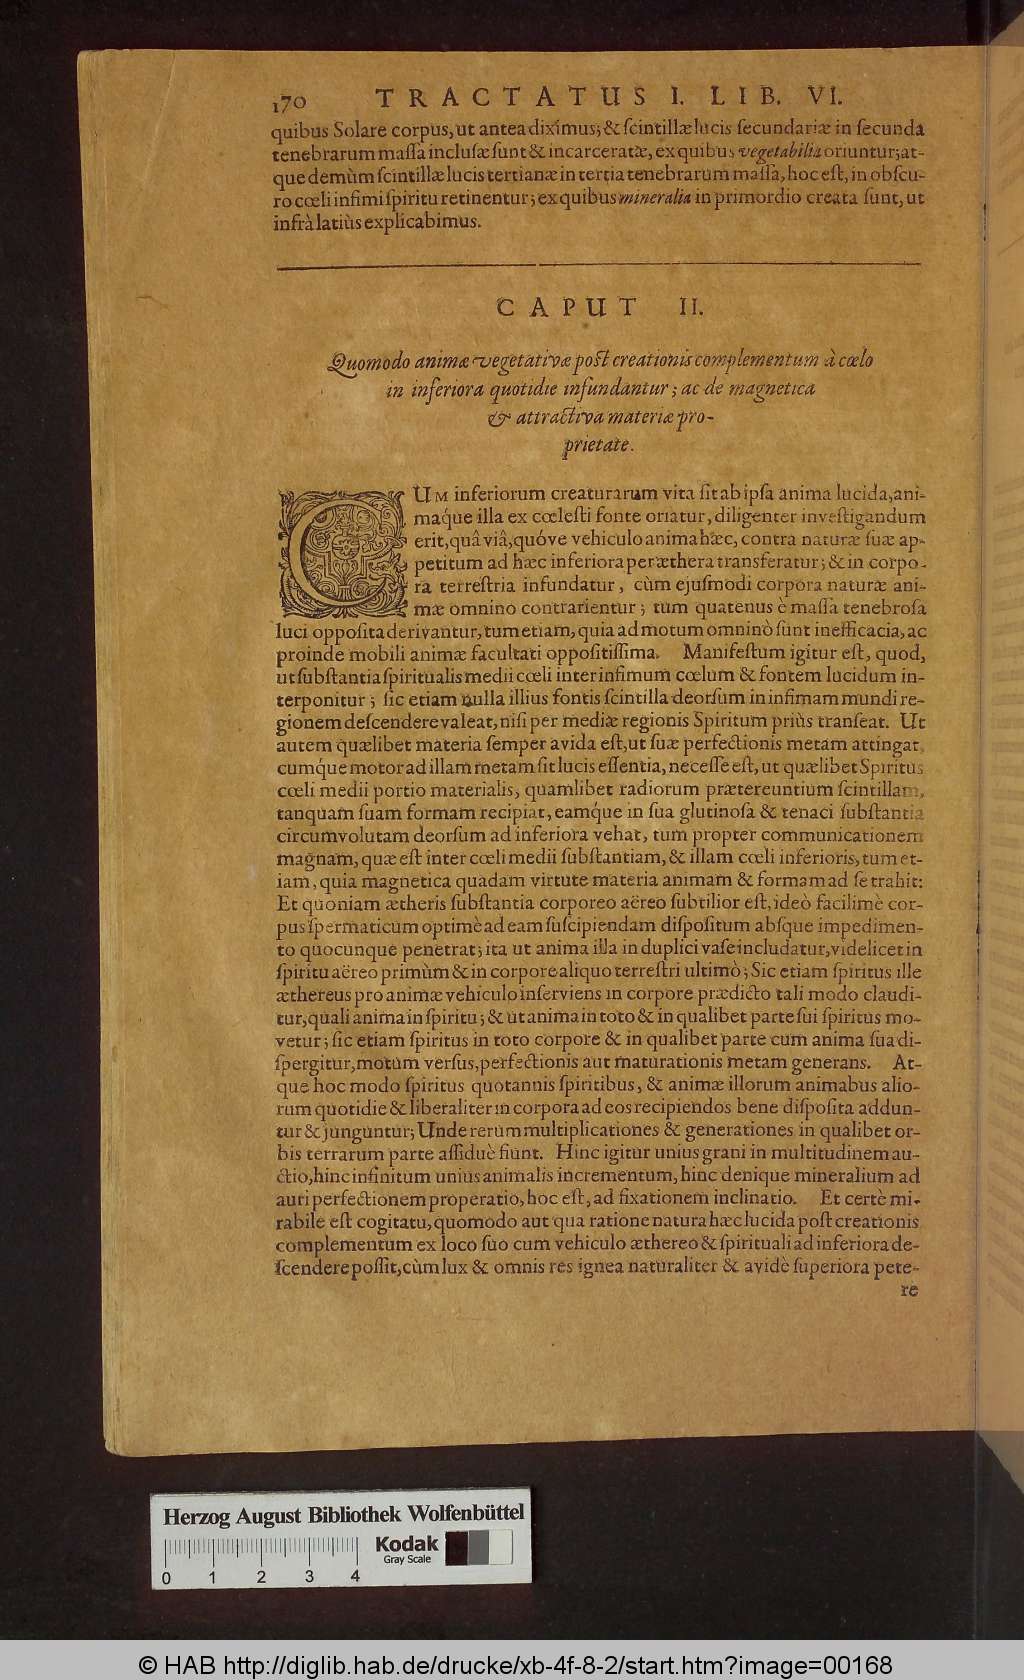 170 TRACTATUS I. LIB. VI.
quibus Solare corpus, ut antea diximus; & ſcintillæ lucis ſecundariæ in ſecunda
tenebrarum maſſa incluſæ ſunt & incarceratæ, ex quibus vegetabilia oriuntur; at-
que demùm ſcintillæ lucis tertianæ in tertia tenebrarum maſſa, hoc eſt, in obſcu-
ro cœli infimi ſpiritu retinentur; ex quibus mineralia in primordio creata ſunt, ut
infrà latiùs explicabimus.
CAPUT II.
Quomodo animæ vegetativæ poſt creationis complementum à cœlo
in inferiora quotidie infundantur; ac de magnetica
& attractiva materiæ pro-
prietate.
CUM inferiorum creaturarum vita ſit ab ipſa anima lucida, ani-
maq́ue illa ex cœleſti fonte oriatur, diligenter inveſtigandum
erit, quâ viâ, quóve vehiculo anima hæc, contra naturæ ſuæ ap-
petitum ad hæc inferiora per æthera transferatur; & in corpo-
ra terreſtria infundatur, cùm ejuſmodi corpora naturæ ani-
mæ omnino contrarientur; tum quatenus è maſſa tenebroſa
luci oppoſita derivantur, tum etiam, quia ad motum omninò ſunt inefficacia, ac
proinde mobili animæ facultati oppoſitiſſima. Manifeſtum igitur eſt, quod,
ut ſubſtantia ſpiritualis medii cœli inter infimum cœlum & fontem lucidum in-
terponitur; ſic etiam nulla illius fontis ſcintilla deorſum in infimam mundi re-
gionem deſcendere valeat, niſi per mediæ regionis Spiritum priùs tranſeat. Ut
autem quælibet materia ſemper avida eſt, ut ſuæ perfectionis metam attingat,
cumq́ue motor ad illam metam ſit lucis eſſentia, neceſſe eſt, ut quælibet Spiritus
cœli medii portio materialis, quamlibet radiorum prætereuntium ſcintillam,
tanquam ſuam formam recipiat, eamq́ue in ſua glutinoſa & tenaci ſubſtantia
circumvolutam deorſum ad inferiora vehat, tum propter communicationem
magnam, quæ eſt inter cœli medii ſubſtantiam, & illam cœli inferioris, tum et-
iam, quia magnetica quadam virtute materia animam & formam ad ſe trahit:
Et quoniam ætheris ſubſtantia corporeo aëreo ſubtilior eſt, ideò facilimè cor-
pus ſpermaticum optimè ad eam ſuſcipiendam diſpoſitum abſque impedimen-
to quocunque penetrat; ita ut anima illa in duplici vaſe includatur, videlicet in
ſpiritu aëreo primùm & in corpore aliquo terreſtri ultimò; Sic etiam ſpiritus ille
æthereus pro animæ vehiculo inſerviens in corpore prædicto tali modo claudi-
tur, quali anima in ſpiritu; & ut anima in toto & in qualibet parte ſui ſpiritus mo-
vetur; ſic etiam ſpiritus in toto corpore & in qualibet parte cum anima ſua di-
ſpergitur, motum verſus, perfectionis aut maturationis metam generans. At-
que hoc modo ſpiritus quotannis ſpiritibus, & animæ illorum animabus alio-
rum quotidie & liberaliter in corpora ad eos recipiendos bene diſpoſita addun-
tur & junguntur; Unde rerum multiplicationes & generationes in qualibet or-
bis terrarum parte aſſiduè fiunt. Hinc igitur unius grani in multitudinem au-
ctio, hinc infinitum unius animalis incrementum, hinc denique mineralium ad
auri perfectionem properatio, hoc eſt, ad fixationem inclinatio. Et certè mi-
rabile eſt cogitatu, quomodo aut qua ratione natura hæc lucida poſt creationis
complementum ex loco ſuo cum vehiculo æthereo & ſpirituali ad inferiora de-
ſcendere poſſit, cùm lux & omnis res ignea naturaliter & avidè ſuperiora pete-
re
Herzog August Bibliothek Wolfenbüttel
Kodak
Gray Scale
0 1 2 3 4
© HAB http://diglib.hab.de/drucke/xb-4f-8-2/start.htm?image=00168